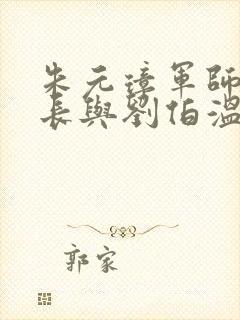 朱元璋軍師
長與劉伯溫
郭家